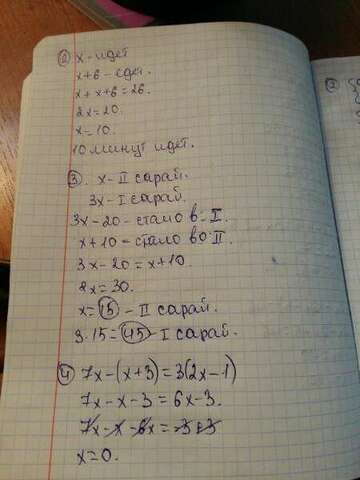 ② x - идет
x+6 - едет.
x + x+6 = 26.
2x = 20.
x = 10.
10 минут идет.
③. x - II сарай.
3x - I сарай.
3x - 20 - стало в I.
x + 10 = стало во II.
3x - 20 = x + 10
2x = 30.
x = 15 - II сарай.
3·15 = 45 - I сарай.
④ 7x - (x+3) = 3(2x-1)
7x - x - 3 = 6x - 3.
7x - x - 6x = -3+3
x = 0.